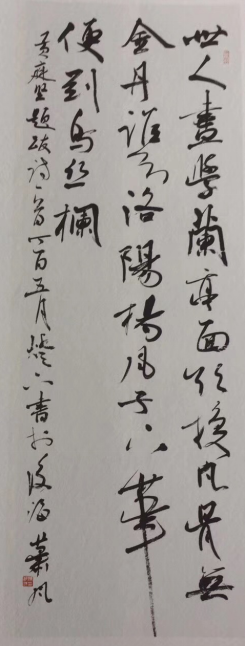 世人盡學蘭亭面欲換凡骨無
金丹誰知洛陽楊风子下筆
便到烏丝欄
黄庭坚題跋詩一首丁酉五月燈下書於